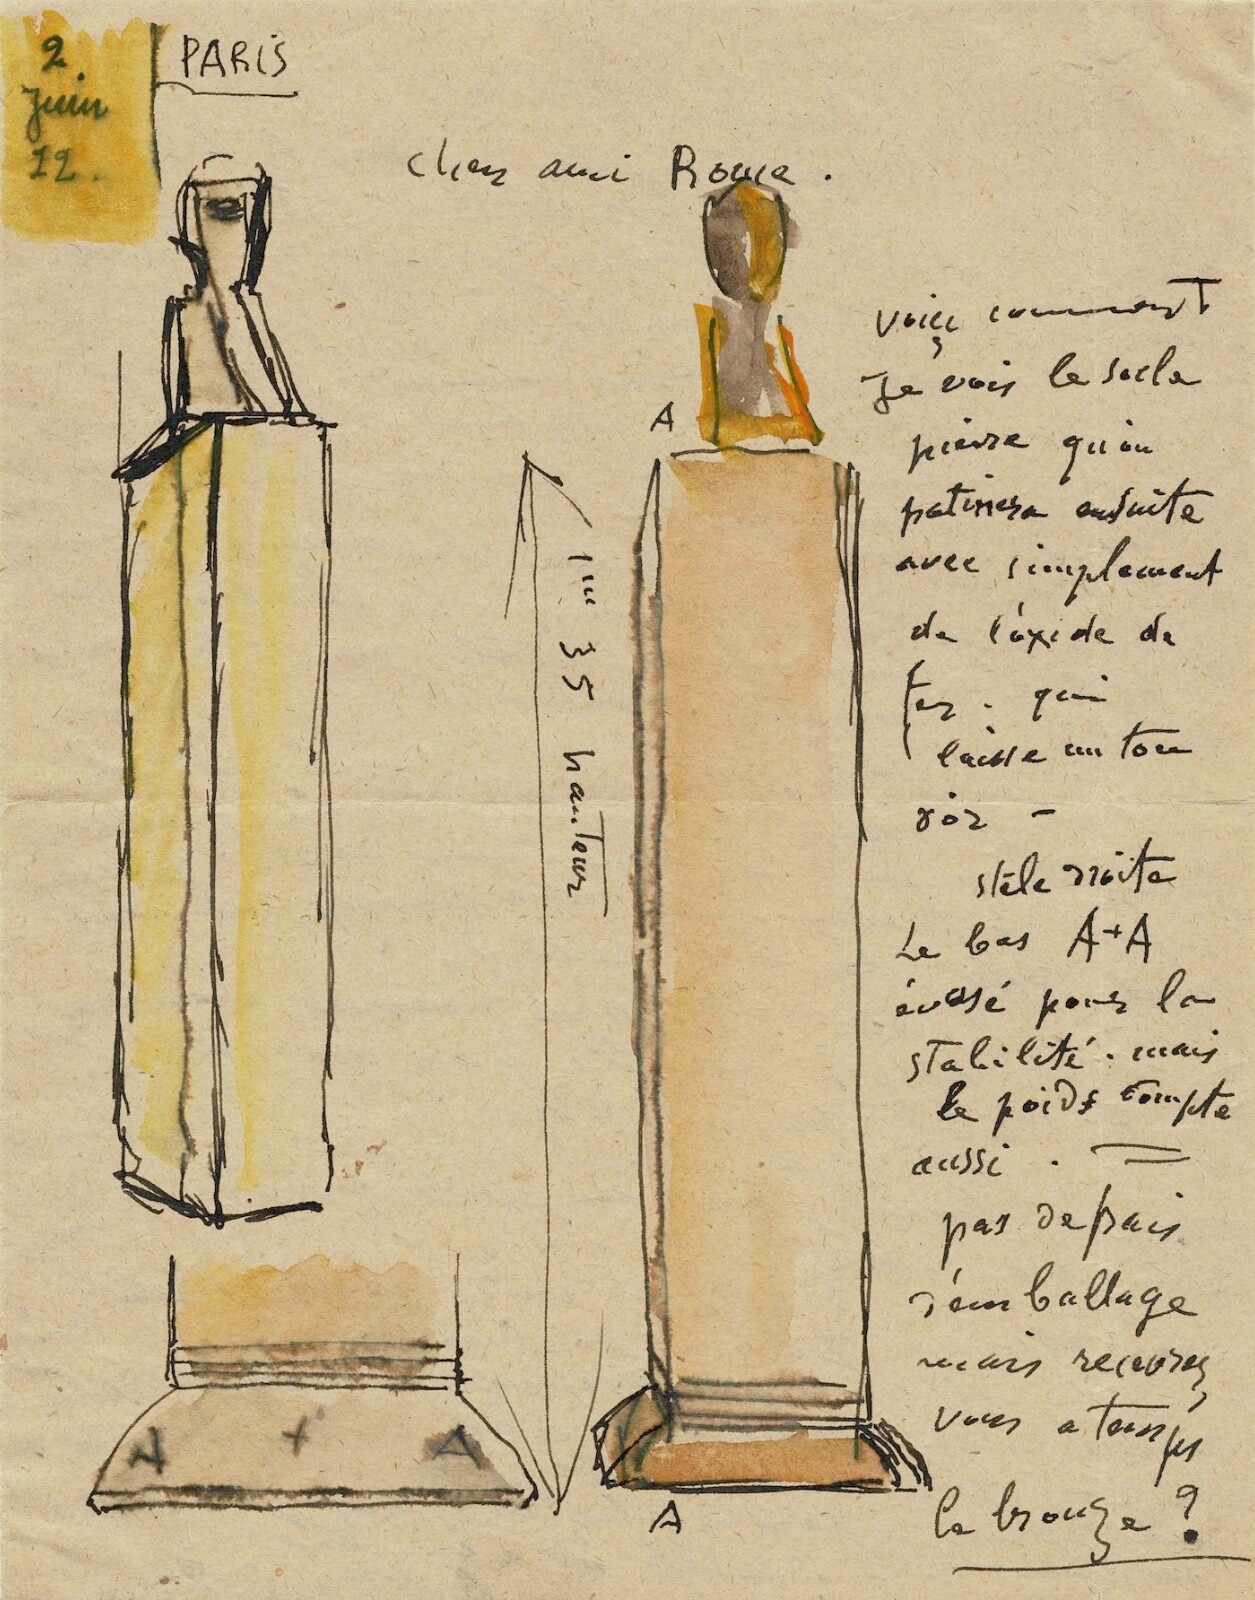 2.
Juin
12.
PARIS
cher ami Rouxe.
voici comment
Je vois le socle
pierre qu'on
patinera ensuite
avec simplement
de l'oxide de
fer. qui
laisse un ton
rôz -
stèle droite
Le bas A+A
évasé pour la
stabilité. mais
le poids compte
aussi. =
pas de frais
d'emballage
mais recevrez
vous a temps
le bronze ?
A
1m 35 hauteur
A + A
A